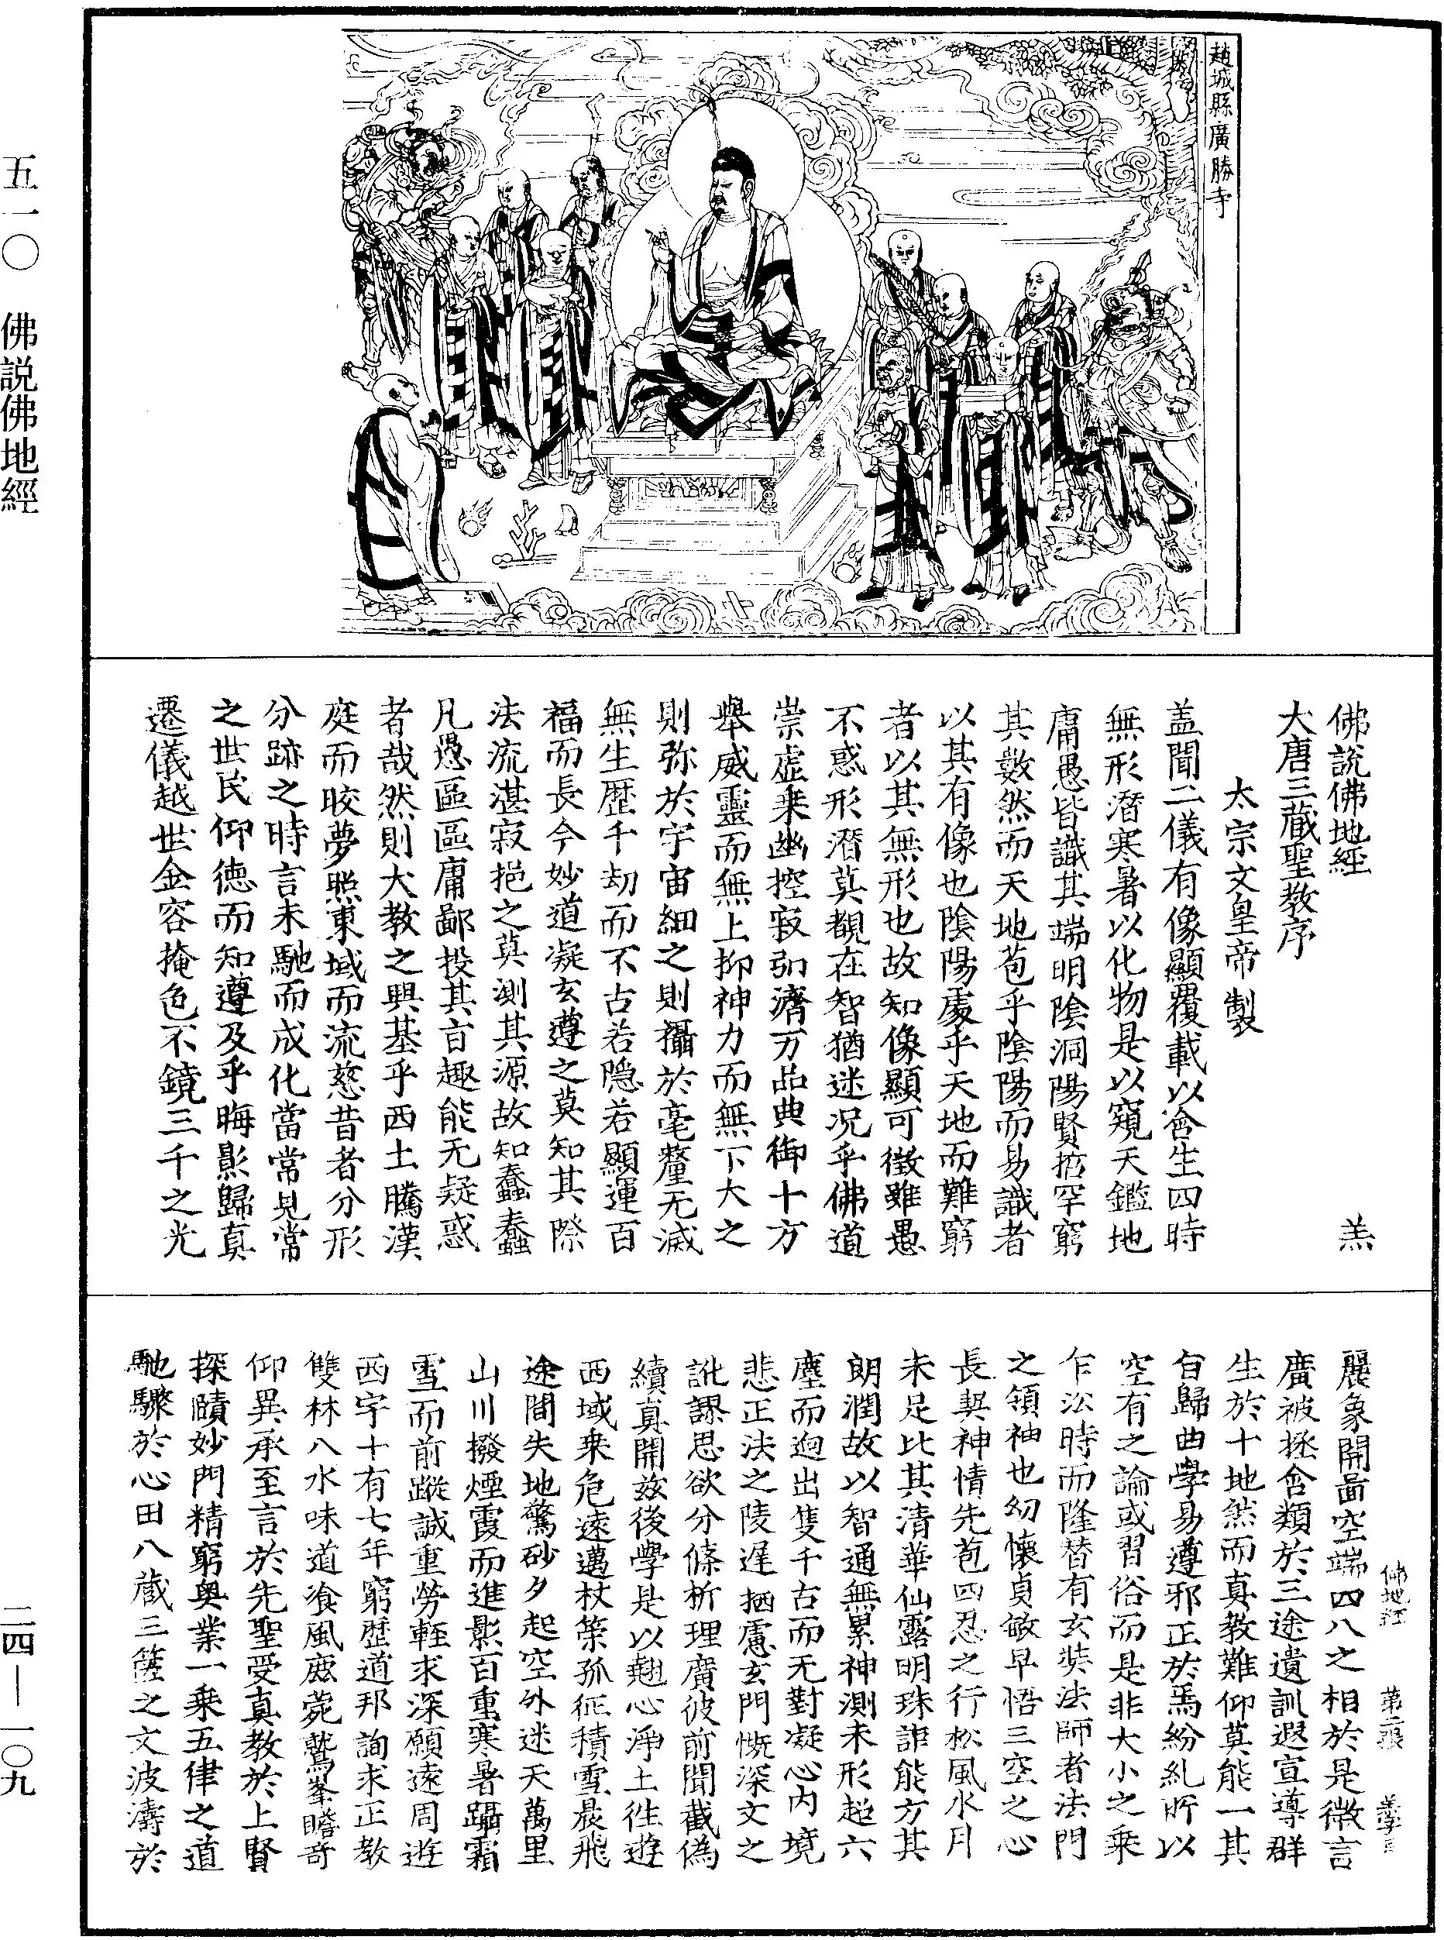 五一〇　佛説佛地經
二四—一〇九
趙城縣廣勝寺
佛說佛地經　羔
大唐三藏聖教序
太宗文皇帝製
盖聞二儀有像顯覆載以含生四時
無形潛寒暑以化物是以窺天鑑地
庸愚皆識其端明陰洞陽賢哲罕窮
其數然而天地苞乎陰陽而易識者
以其有像也陰陽處乎天地而難窮
者以其無形也故知像顯可徵雖愚
不惑形潛莫覩在智猶迷况乎佛道
崇虛乘幽控寂弘濟万品典御十方
舉威靈而無上抑神力而無下大之
則弥於宇宙細之則攝於毫釐无滅
無生歷千劫而不古若隱若顯運百
福而長今妙道凝玄遵之莫知其際
法流湛寂挹之莫測其源故知蠢蠢
凡愚區區庸鄙投其盲趣能无疑惑
者哉然則大教之興基乎西土騰漢
庭而皎夢照東域而流慈昔者分形
分跡之時言未馳而成化當常見常
之世民仰德而知遵及乎晦影歸真
遷儀越世金容掩色不鏡三千之光
麗象開啚空端四八之相於是微言
廣被拯含類於三途遺訓遐宣導群
生於十地然而真教難仰莫能一其
旨歸曲學易遵邪正於焉紛糺所以
空有之論或習俗而是非大小之乘
乍訟時而隆替有玄奘法師者法門
之領袖也幼懷貞敏早悟三空之心
長契神情先苞四忍之行松風水月
未足比其清華仙露明珠詎能方其
朗潤故以智通無累神測未形超六
塵而逈出隻千古而无對凝心內境
悲正法之陵遲栖慮玄門慨深文之
訛謬思欲分條析理廣彼前聞截偽
續真開兹後學是以翹心淨土徃遊
西域乘危遠邁杖策孤征積雪晨飛
途間失地驚砂夕起空外迷天萬里
山川撥煙霞而進影百重寒暑躡霜
雪而前蹤誠重勞輕求深願遠周遊
西宇十有七年窮歷道邦詢求正教
雙林八水味道飡風鹿菀鷲峯瞻奇
仰異承至言於先聖受真教於上賢
探賾妙門精窮奥業一乘五律之道
馳驟於心田八藏三篋之文波濤於
佛地經　第二張　羔字号